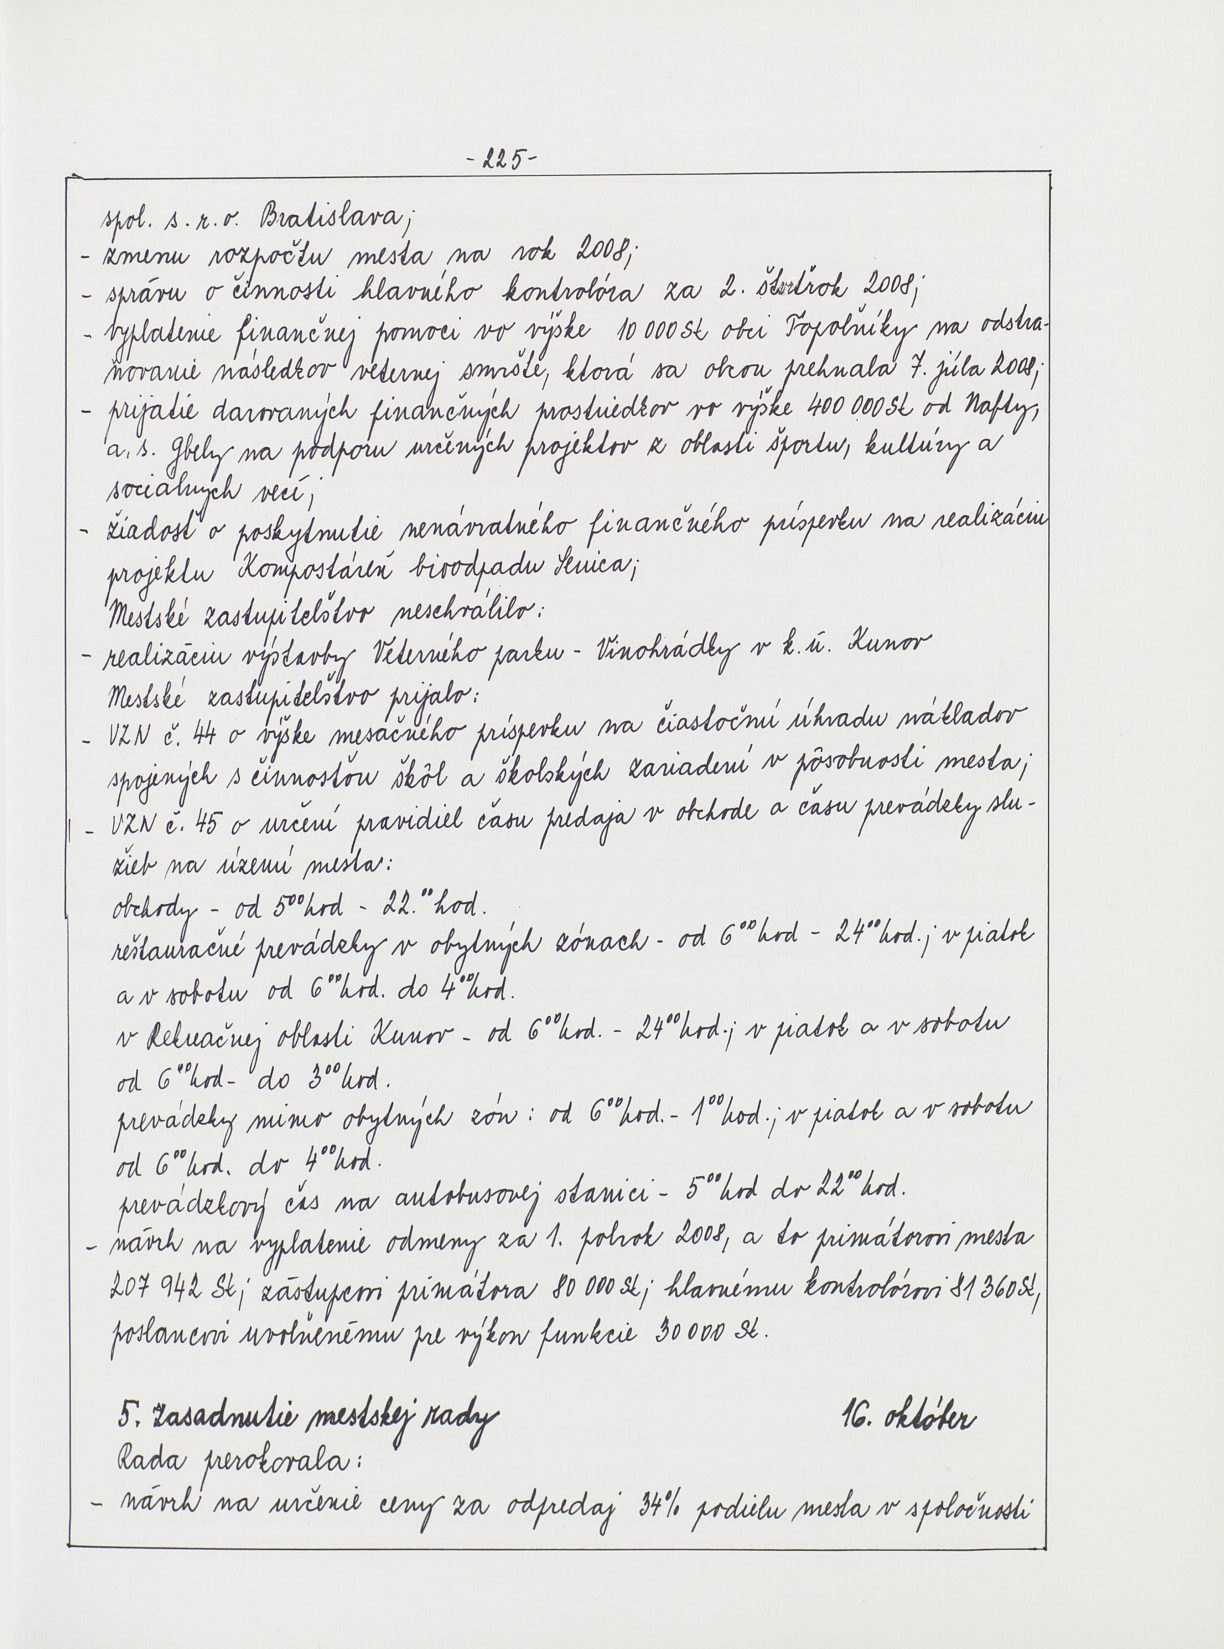 - 225 -
spol. s. r. o. Bratislava;
- zmenu rozpočtu mesta na rok 2008;
- správu o činnosti hlavného kontrolóra za 2. štvrťrok 2008;
- vyplatenie finančnej pomoci vo výške 10 000 Sk obci Topoľníky na odstra-
ňovanie následkov veternej smršte, ktorá sa obcou prehnala 7. júla 2008;
- prijatie darovaných finančných prostriedkov vo výške 400 000 Sk od Nafty,
a. s. Gbely na podporu určených projektov z oblasti športu, kultúry a
sociálnych vecí;
- žiadosť o poskytnutie nenávratného finančného príspevku na realizáciu
projektu Kompostáreň bioodpadu Senica;
Mestské zastupiteľstvo neschválilo:
- realizáciu výstavby Veterného parku - Vinohrádky v k. ú. Kunov
Mestské zastupiteľstvo prijalo:
- VZN č. 44 o výške mesačného príspevku na čiastočnú úhradu nákladov
spojených s činnosťou škôl a školských zariadení v pôsobnosti mesta;
- VZN č. 45 o určení pravidiel času predaja v obchode a času prevádzky slu-
žieb na území mesta:
obchody - od 5⁰⁰ hod - 22.⁰⁰ hod.
reštauračné prevádzky v obytných zónach - od 6⁰⁰ hod - 24⁰⁰ hod.; v piatok
a v sobotu od 6⁰⁰ hod. do 4⁰⁰ hod.
v Rekreačnej oblasti Kunov - od 6⁰⁰ hod. - 24⁰⁰ hod.; v piatok a v sobotu
od 6⁰⁰ hod - do 3⁰⁰ hod.
prevádzky mimo obytných zón: od 6⁰⁰ hod. - 1⁰⁰ hod.; v piatok a v sobotu
od 6⁰⁰ hod. do 4⁰⁰ hod.
prevádzkový čas na autobusovej stanici - 5⁰⁰ hod do 22⁰⁰ hod.
- návrh na vyplatenie odmeny za 1. polrok 2008, a to primátorovi mesta
207 942 Sk; zástupcovi primátora 80 000 Sk; hlavnému kontrolórovi 81 360 Sk,
poslancovi uvoľnenému pre výkon funkcie 30 000 Sk.
5. zasadnutie mestskej rady 16. október
Rada prerokovala:
- návrh na určenie ceny za odpredaj 34% podielu mesta v spoločnosti